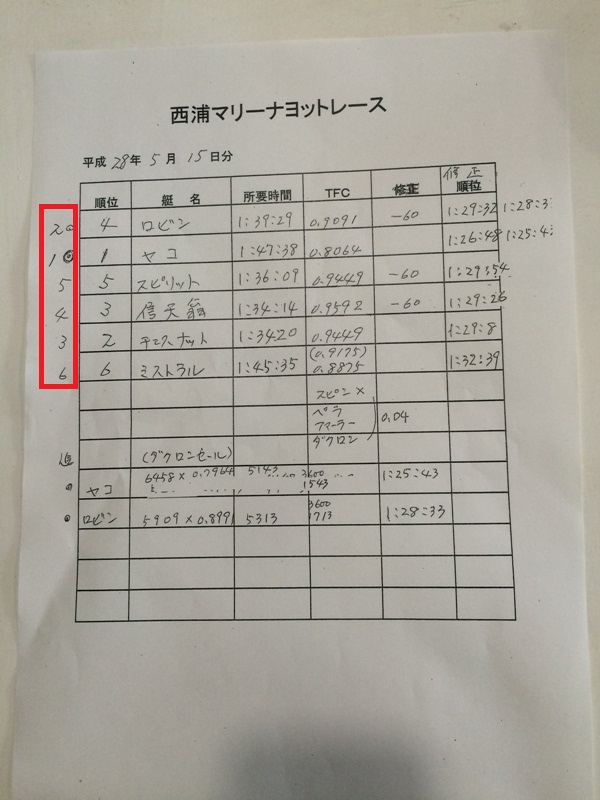 西浦マリーナヨットレース
平成 28年 5月 15日分
順位 艇名 所要時間 TFC 修正 修正順位
2 4 ロビン 1:39:29 0.9091 -60 1:29:32 1:28:3
1 1 ヤコ 1:47:38 0.8064 1:26:48 1:25:43
5 5 スピリット 1:36:09 0.9449 -60 1:29:54
4 3 信天翁 1:34:14 0.9592 -60 1:29:26
3 2 チェスナット 1:34:20 0.9449 1:29:8
6 6 ミストラル 1:45:35 (0.9175) 0.8875 1:32:39
スピン×
ペラ
ファーラー 0.04
ダクロン
追 (ダクロンセール)
ヤコ 6458×0.7964 5143 3600 1543 1:25:43
ロビン 5909×0.899 5313 3600 1713 1:28:33